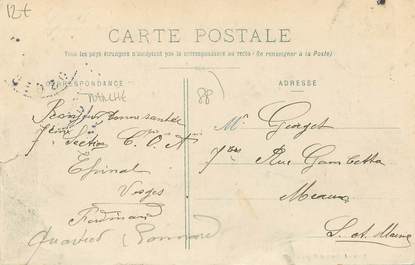 12€
CARTE POSTALE
Tous les pays étrangers n'acceptent pas la correspondance au recto (Se renseigner à la Poste)
CORRESPONDANCE
ADRESSE
88
bonne santé
7ème Section C.O.A
Epinal
Vosges
Ferdinand
Quartier
Mr Georget
7bis Rue Gambetta
Meaux
S. et Marne